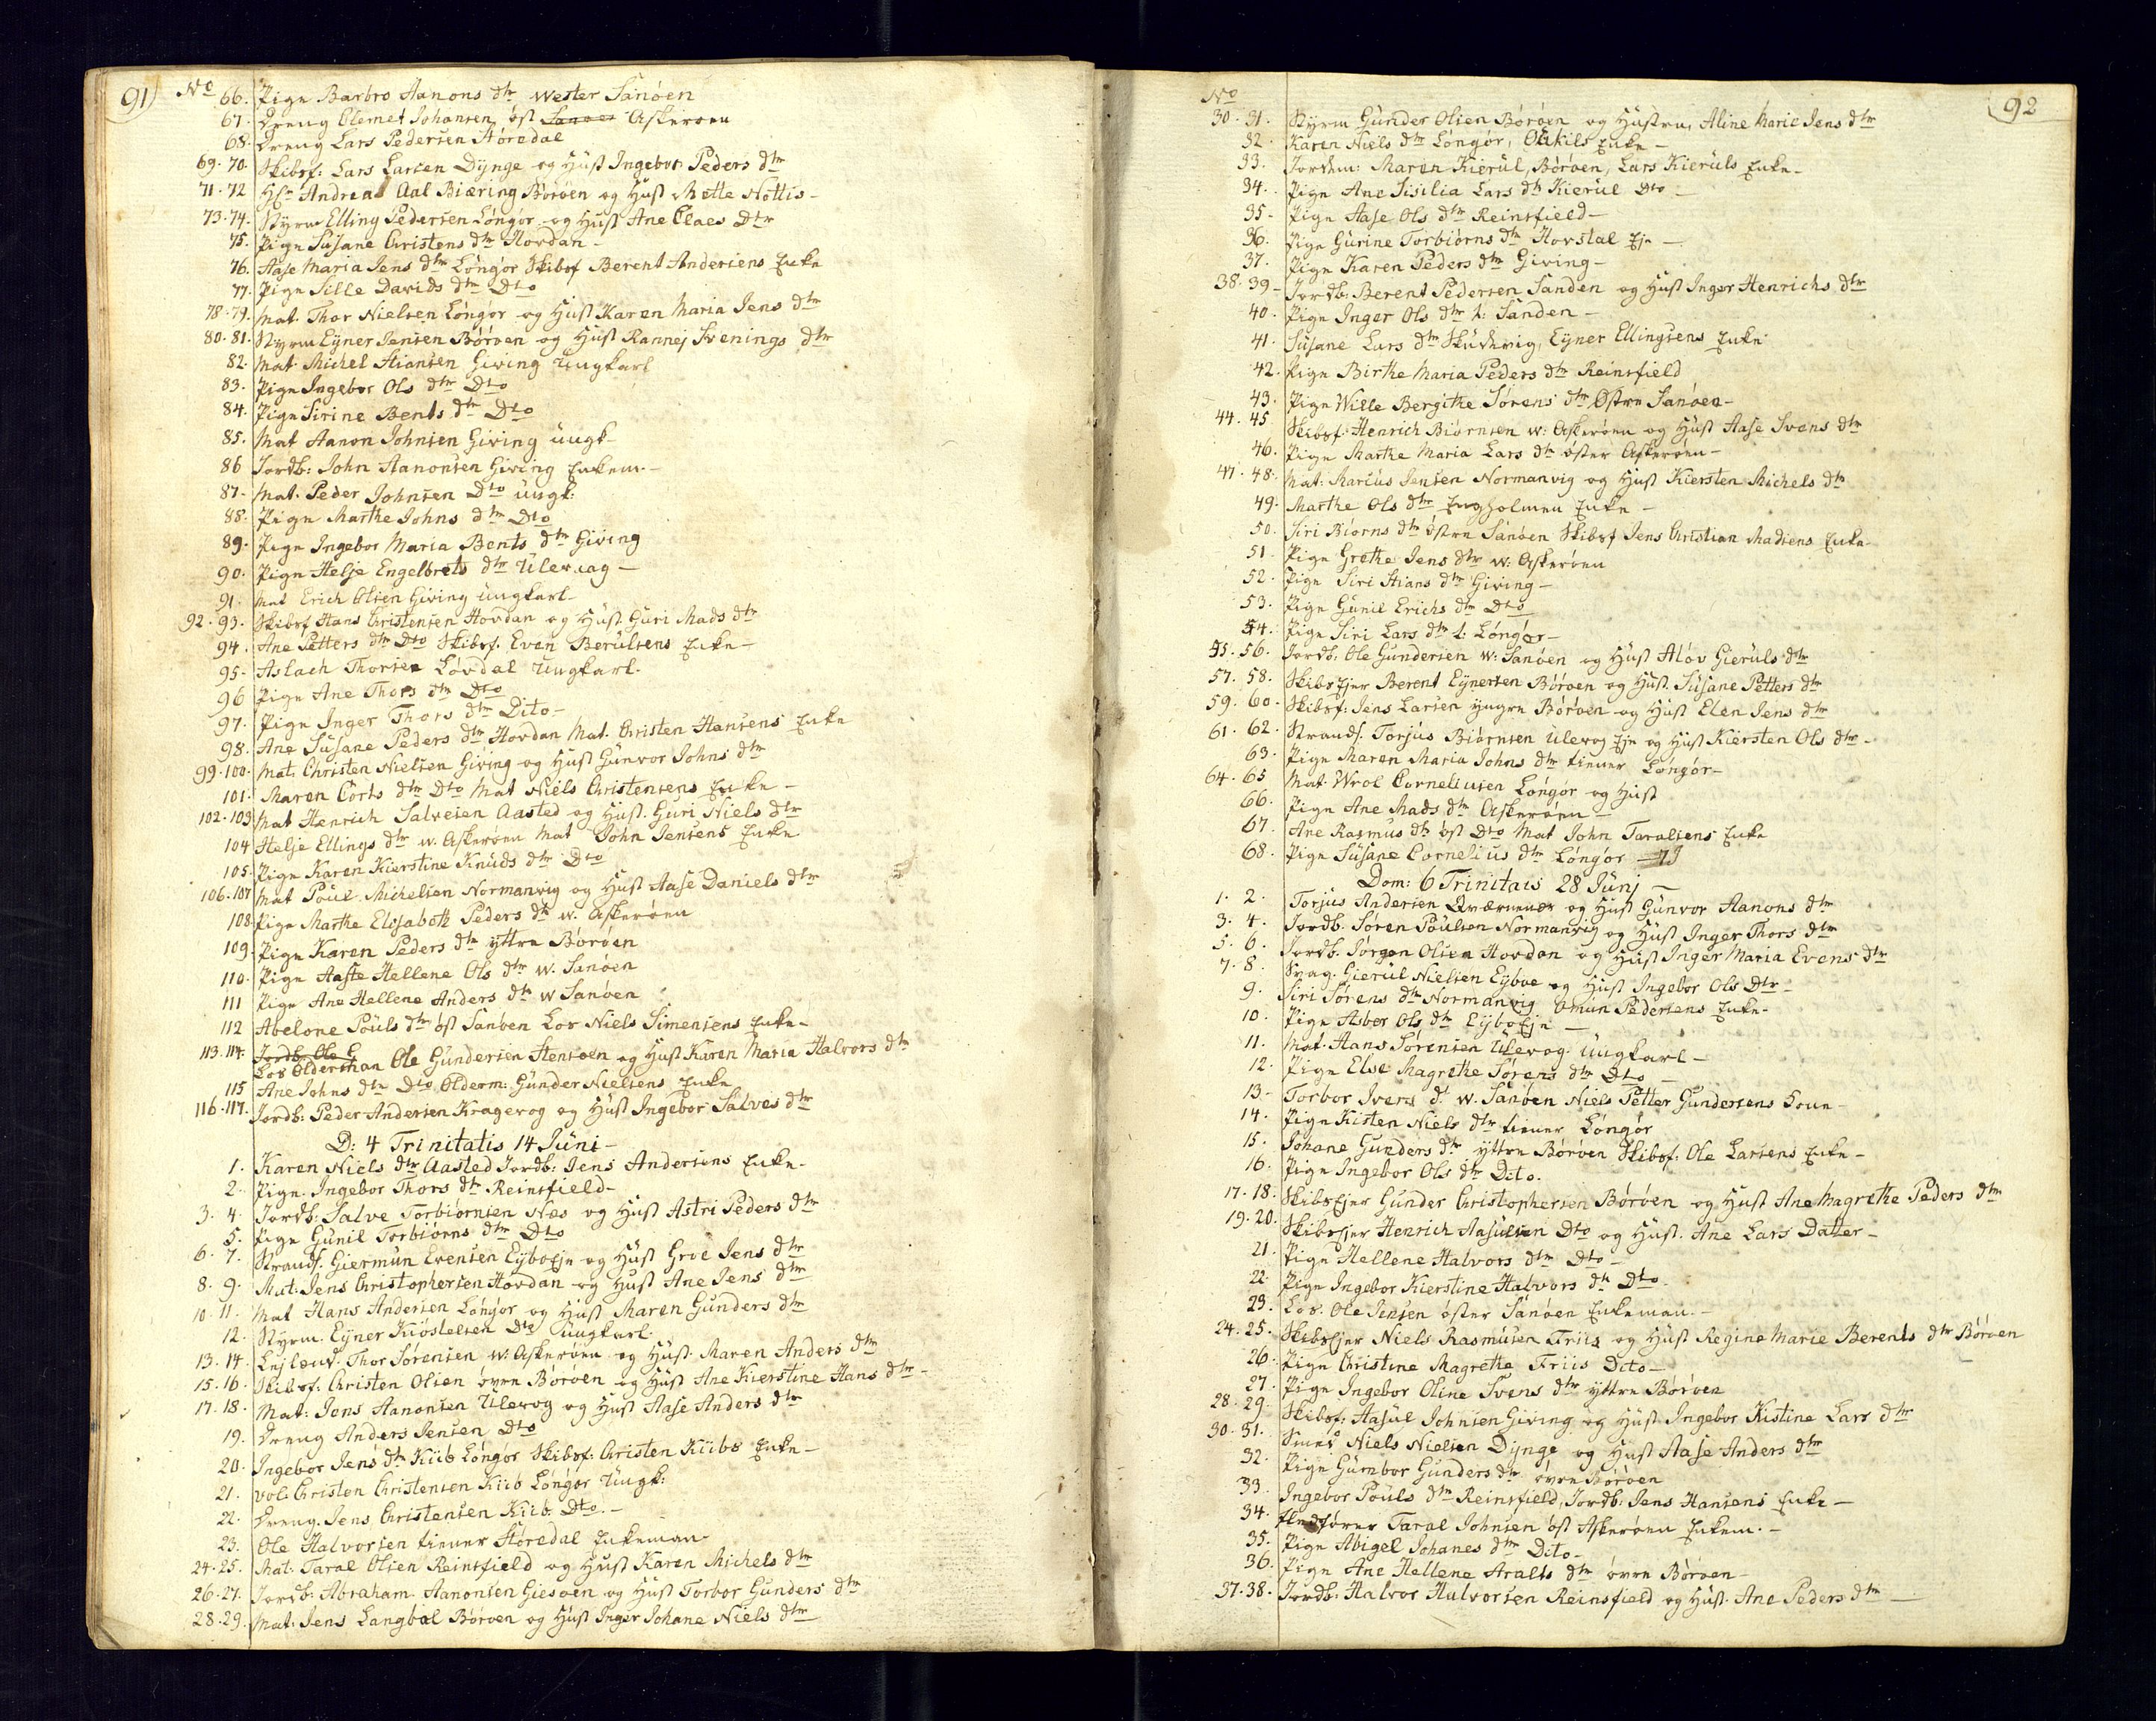 91
No
66. Pige Barbro Aanons dtr Wester Sanöen
67. Dreng Clemet Johansen öst Sanöen Askeröen
68. Dreng Lars Pedersen Höredal
69. 70. Skibsf: Lars Larsen Dynge og Hust Ingebor Peders dtr
71. 72 Hr Andreas Aal Biæring Böröen og Hust Mette Nottis -
73. 74. Styrm Elling Pedersen Löngör og Hust Ane Claes Dtr
75. Pige Susane Christens dtr Hovdan -
76. Aase Maria Jens dtr Löngör Skibsf Berent Andersens Enke
77. Pige Sille Davids dtr Dto
78. 79. Mat. Thor Nielsen Löngör og Hust Karen Maria Jens dtr
80. 81. Styrm Eyner Jensen Böröen og Hust Rannej Svenings dtr
82. Mat. Michel Stiansen Giving Ungkarl
83. Pige Ingebor Ols dtr Dto
84. Pige Sirine Bents dtr Dto
85. Mat Aanon Johnsen Giving ungk -
86 Jordb: John Aanonsen Giving Enkem. -
87. Mat. Peder Johnsen Dto ungk:
88. Pige Marthe Johns dtr Dto
89. Pige Ingebor Maria Bents dtr Giving
90. Pige Helje Engelbrets dtr Ulevaag -
91. Mat Erich Olsen Giving ungkarl -
92. 93. Skibsf Hans Christensen Hovdan og Hust Guri Mads dtr
94. Ane Petters dtr Dto Skibsf. Even Berulsens Enke -
95. Aslach Thorsen Lövdal Ungkarl.
96 Pige Ane Thors dtr Dto
97. Pige Inger Thors dtr Dito -
98. Ane Susane Peders dtr Hovdan Mat. Christen Hansens Enke
99. 100. Mat: Christen Nielsen Giving og Hust Gunvor Johns dtr
101. Maren Corts dtr Dto Mat Niels Christensens Enke -
102. 103 Mat Henrich Salvesen Aasted og Hust. Guri Niels dtr
104 Helje Ellings dtr w. Askeröen Mat John Jensens Enke
105. Pige Karen Kierstine Knuds dtr Dto
106. 107 Mat Poul Michelsen Normanvig og Hust Aase Daniels dtr
108. Pige Marthe Elisabeth Peders dtr w. Askeröen
109. Pige Karen Peders dtr yttre Böröen
110. Pige Aaste Hellene Ols dtr w. Sanöen
111 Pige Ane Hellene Anders dtr w Sanöen
112 Abelone Pouls dtr öst Sanöen Los Niels Simensens Enke -
113. 114. Jordb: Ole G
Los Olderman Ole Gundersen Stensöen og Hust Karen Maria Halvors dtr
115 Ane Johns dtr Dto Olderm: Gunder Nielsens Enke
116. 117. Jordb: Peder Andersen Kragevog og Hust Ingebor Salves dtr
D: 4 Trinitatis 14 Juni -
1. Karen Niels dtr Aasted Jordb: Jens Andersens Enke -
2. Pige. Ingebor Thors dtr Reinsfield -
3. 4. Jordb: Salve Torbiörnsen Næs og Hust Astri Peders dtr
5. Pige Gunil Torbiörns dtr Dto
6. 7. Strands. Giermun Evensen Eyboeje og Hust Groe Jens dtr
8. 9. Mat: Jens Christophersen Hovdan og Hust Ane Jens dtr
10. 11. Mat Hans Andersen Löngör og Hust Maren Gunders dtr
12. Styrm. Eyner Kiöstelsen Dto ungkarl.
13. 14. Lejlend. Thor Sörensen w: Askeröen og Hust. Maren Anders dtr
15. 16. Skibsf: Christen Olsen övre Böröen og Hust Ane Kierstine Hans dtr -
17. 18. Mat: Jens Aanonsen Ulevog og Hust Aase Anders dtr
19. Dreng Anders Jensen Dto
20. Ingebor Jens dtr Kiib Löngör Skibsf: Christen Kiibs Enke -
21. Vol: Christen Christensen Kiib Löngör Ungk:
22. Dreng. Jens Christensen Kiib. Dto. -
23. Ole Halvorsen tiener Höredal Enkeman
24. 25. Mat: Taral Olsen Reinsfield og Hust Karen Michels dtr
26. 27. Jordb: Abraham Aanonsen Giesöen og Hust Torbor Gunders dtr
28. 29. Mat: Jens Langbal Böröen og Hust Inger Johane Niels dtr
92
No
30. 31. Styrm Gunder Olsen Böröen og Hustru, Aline Marie Jens dtr
32. Karen Niels dtr Löngör, Enke -
33. Jordem: Maren Kierul, Böröen, Lars Kieruls Enke -
34. Pige Ane Sisilia Lars dtr Kierul Dto -
35 - Pige Aase Ols dtr Reinsfield -
36. Pige Gurine Torbiörns dtr Hovstal Eje -
37. Pige Karen Peders dtr Giving -
38. 39 - Jordb: Berent Pedersen Sanden og Hust Inger Henrichs dtr
40. Pige Inger Ols dtr t: Sanden -
41. Susane Lars dtr Skudevig, Eyner Ellingsens Enke
42. Pige Birthe Maria Peders dtr Reinsfield
43. Pige Wille Bergithe Sörens dtr Östre Sanöen -
44. 45 Skibsf. Henrich Biörnsen w: Askeröen og Hust Aase Svens dtr
46. Pige Marthe Maria Lars dtr öster Askeröen -
47. 48. Mat: Marius Jensen Normanvig og Hust Kiersten Michels dtr
49. Marthe Ols dtr Engholmen Enke -
50. Siri Biörns dtr östre Sanöen Skibsf Jens Christian Madsens Enke -
51 - Pige Grethe Jens dtr w: Askeröen
52. Pige Siri Stians dtr Giving -
53. Pige Gunil Erichs dtr Dto
54. Pige Siri Lars dtr t: Löngör -
55. 56. Jordb: Ole Gundersen w: Sanöen og Hust Alöv Gieruls dtr
57. 58. Skibsejer Berent Eynersen Böröen og Hust. Susane Petters dtr
59. 60. Skibsf: Jens Larsen yngre Böröen og Hust Elen Jens dtr
61. 62. Strands. Torjus Biörnsen Ulevog Eje og Hust Kiersten Ols dtr -
63. Pige Maren Maria Johns dtr tiener Löngör -
64. 65 Mat. Wrol Corneliusen Löngör og Hust
66. Pige Ane Mads dtr Askeröen -
67. Ane Rasmus dtr öst Dto Mat John Taralsens Enke
68. Pige Susane Cornelius dtr Löngör -
Dom: 6 Trinitais 28 Junj
1. 2. Torjus Andersen Qværnenær og Hust Gunvor Aanons dtr
3. 4. Jordb. Sören Poulsen Normanvig og Hust Inger Thors dtr
5. 6. Jordb. Jörgen Olsen Hovdan og Hust Inger Maria Evens dtr
7. 8. Svag. Gierul Nielsen Eyboe og Hust Ingebor Ols Dtr -
9. Siri Sörens dtr Normanvig Omun Pedersens Enke -
10. Pige Asbor Ols dtr Eyboeje -
11. Mat. Hans Sörensen Ulevog. ungkarl -
12. Pige Else Magrethe Sörens dtr Dto -
13 - Torbor Ivers dt w. Sanöen Niels Petter Gundersens Kone -
14. Pige Kisten Niels dtr tiener Löngör
15. Johane Gunders dtr yttre Böröen Skibsf: Ole Larsens Enke -
16. Pige Ingebor Ols dtr Dito.
17. 18. Skibsejer Gunder Christophersen Böröen og Hust Ane Magrethe Peders dtr
19. 20. Skibsejer Henrich Aasulsen Dto og Hust. Ane Lars Dater -
21. Pige Hellene Halvors dtr Dto -
22. Pige Ingebor Kierstine Halvors dtr Dto
23. Los: Ole Jensen öster Sanöen Enkeman. -
24. 25. Skibsejer Niels Rasmusen Friis og Hust Regine Marie Berents dtr Böröen
26. Pige Christine Magrethe Friis Dito -
27. Pige Ingebor Oline Svens dtr yttre Böröen
28. 29. Skibsf: Aasul Johnsen Giving og Hust Ingebor Kistine Lars dtr
30. 31. Smed Niels Nielsen Dynge og Hust Aase Anders dtr
32. Pige Gumbor Gunders dtr övre Böröen
33. Ingebor Pouls dtr Reinsfield, Jordb: Jens Hansens Enke -
34. Fledförer Taral Johnsen öst Askeröen Enkem. -
35. Pige Abigel Johanes dtr Dito -
36. Pige Ane Hellene Aralts dtr övre Böröen -
37. 38. Jordb: Halvor Halvorsen Reinsfield og Hust. Ane Peders dtr -